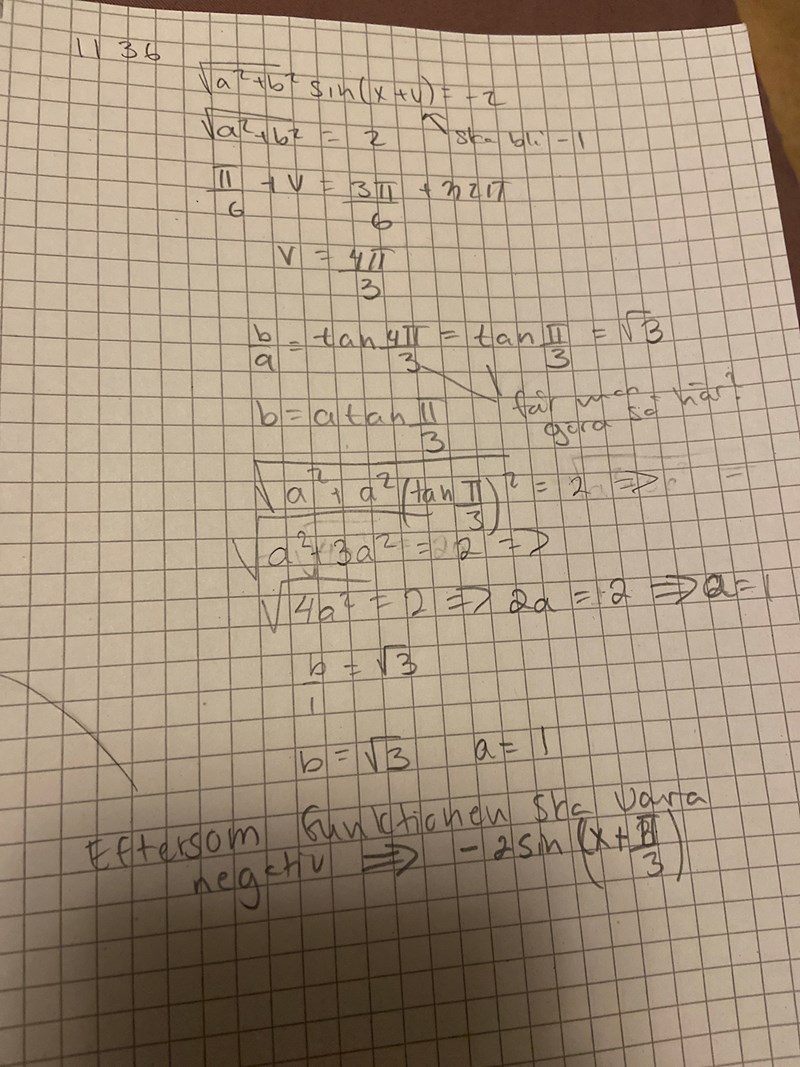 1136
√(a²+b²) sin(x+v) = -2
√(a²+b²) = 2 ska bli -1
π/6 + v = 3π/6 + n2π
v = 4π/3
b/a = tan 4π/3 = tan π/3 = √3
får man göra så här?
b = a tan π/3
√(a² + a²(tan π/3)²) = 2 =>
√(a²+3a²) = 2 =>
√(4a²) = 2 => 2a = 2 => a = 1
b/1 = √3
b = √3 a = 1
Eftersom funktionen ska vara
negativ => -2sin(x+π/3)